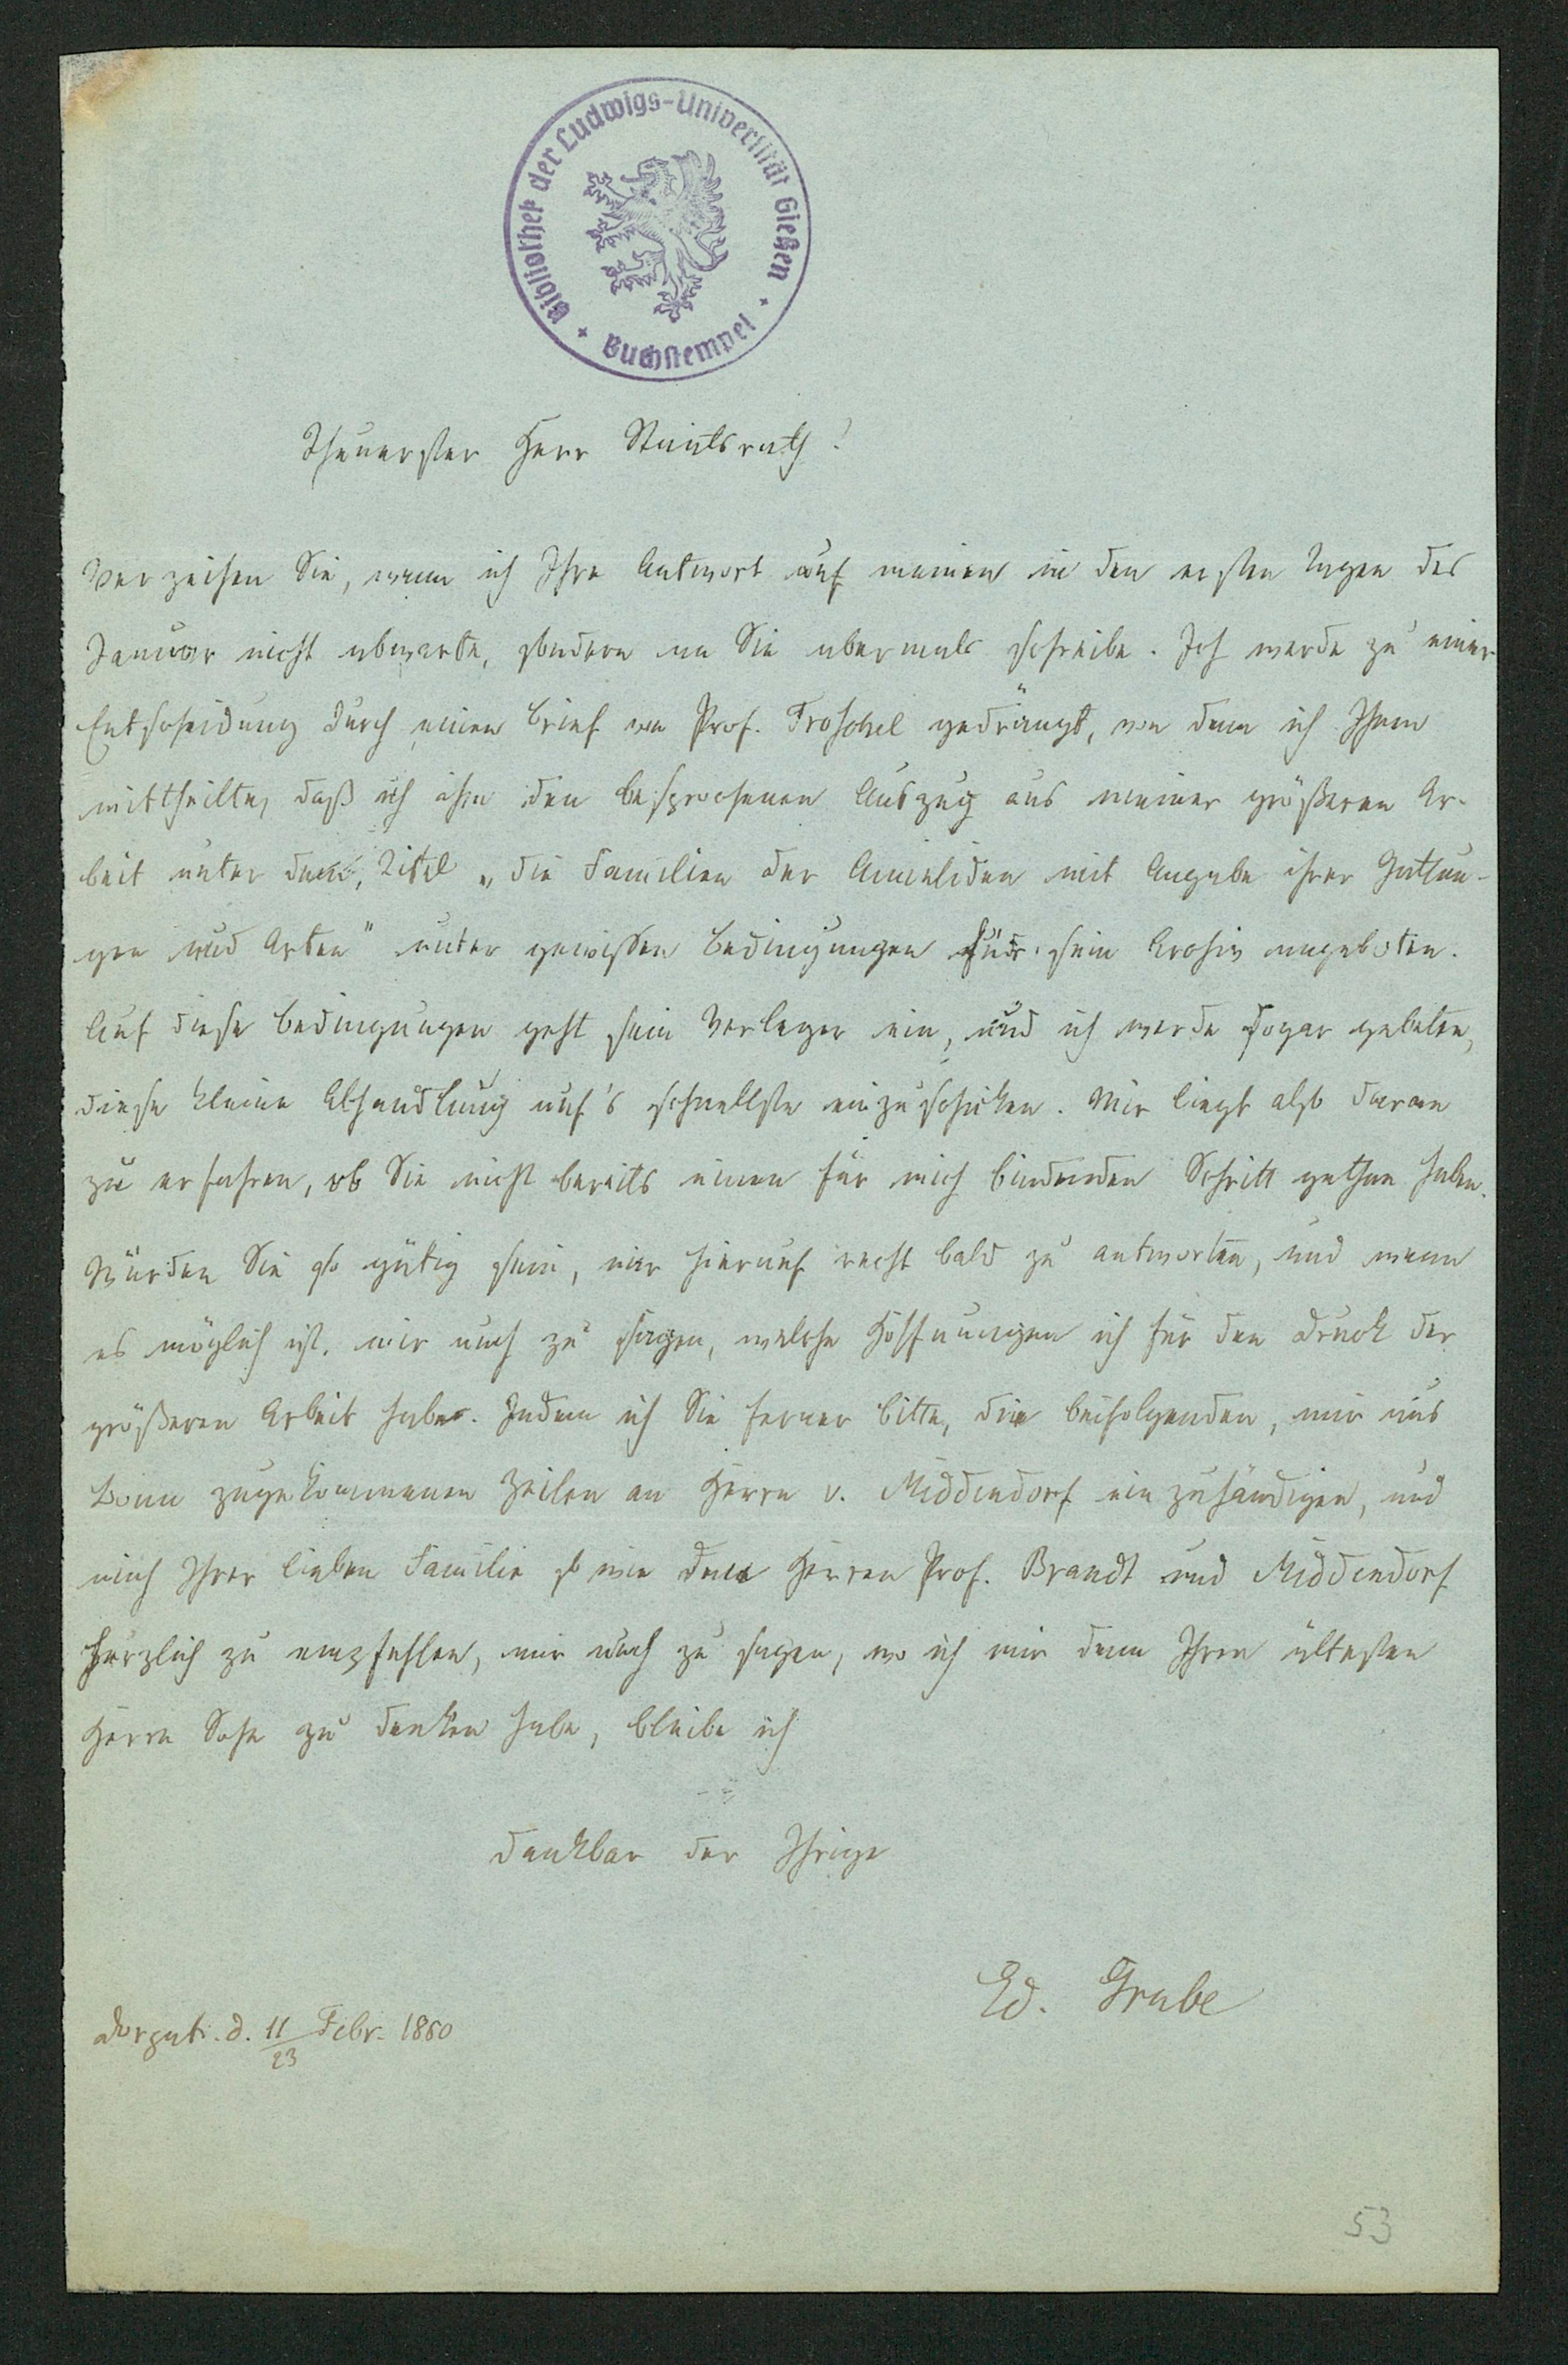 Bibliothek der Ludwigs-Universität Gießen
Buchstempel
Theuerster Herr Staatsrath!
Verzeihen Sie, wenn ich Ihre Antwort auf meinen in den ersten Tagen des
Januar nicht abwarte, sondern an Sie abermals schreibe. Ich werde zu einer
Entscheidung durch einen Brief von Prof. Troschel gedrängt, von dem ich Ihnen
mittheilte, daß ich ihm den besprochenen Auszug aus meiner größeren Ar-
beit unter dem Titel „die Familien der Anneliden mit Angabe ihrer Gattun-
gen und Arten" unter gewissen Bedingungen für sein Archiv angeboten.
Auf diese Bedingungen geht sein Verleger ein, und ich werde sogar gebeten,
diese kleine Abhandlung auf's schnellste einzuschicken. Mir liegt also daran
zu erfahren, ob Sie nicht bereits einen für mich bindenden Schritt gethan haben.
Würden Sie so gütig sein, mir hierauf recht bald zu antworten, und wenn
es möglich ist, mir auch zu sagen, welche Hoffnungen ich für den Druck der
größeren Arbeit habe. Indem ich Sie ferner bitte, die beifolgenden, mir aus
Bonn zugekommenen Zeilen an Herrn v. Middendorf einzuhändigen, und
mich Ihrer lieben Familie so wie den Herren Prof. Brandt und Middendorf
herzlich zu empfehlen, mir auch zu sagen, wo ich mir denn Ihren ältesten
Herrn Sohn zu denken habe, bleibe ich
dankbar der Ihrige
Ed. Grube
Dorpat. d. 11/23 Febr. 1850
53